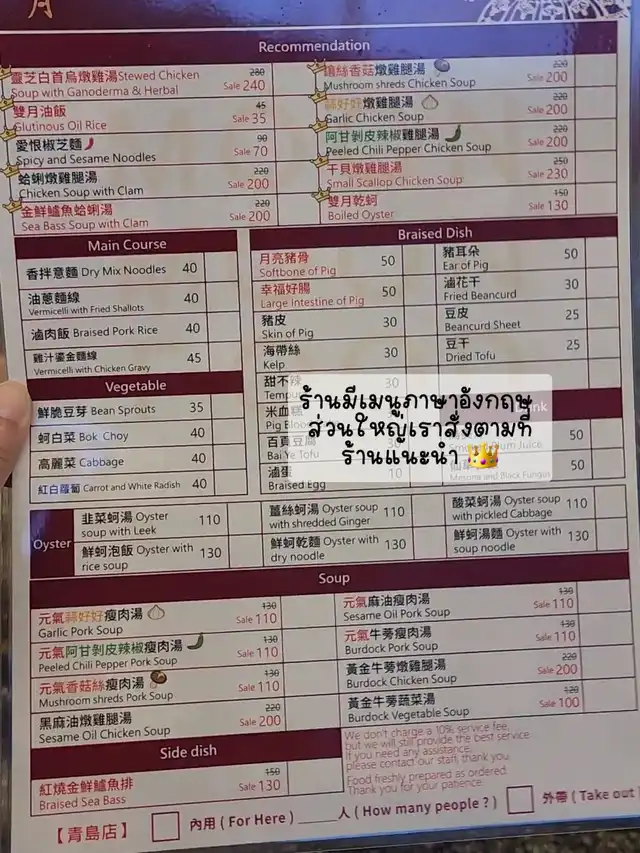 月
Recommendation
靈芝白首烏燉雞湯Stewed Chicken
Soup with Ganoderma & Herbal
280
Sale 240
雙月油飯
Glutinous Oil Rice
45
Sale 35
愛恨椒芝麵
Spicy and Sesame Noodles
90
Sale 70
蛤蜊燉雞腿湯
Chicken Soup with Clam
220
Sale 200
金鮮鱸魚蛤蜊湯
Sea Bass Soup with Clam
220
Sale 200
絲香菇燉雞腿湯
Mushroom shreds Chicken Soup
220
Sale 200
蒜好好燉雞腿湯
Garlic Chicken Soup
220
Sale 200
阿甘剝皮辣椒雞腿湯
Peeled Chili Pepper Chicken Soup
220
Sale 200
干貝燉雞腿湯
Small Scallop Chicken Soup
250
Sale 230
雙月乾蚵
Boiled Oyster
150
Sale 130
Main Course
香拌意麵 Dry Mix Noodles 40
油蔥麵線
Vermicelli with Fried Shallots
40
滷肉飯 Braised Pork Rice 40
雞汁鎏金麵線
Vermicelli with Chicken Gravy
45
Vegetable
鮮脆豆芽 Bean Sprouts 35
蚵白菜 Bok Choy 40
高麗菜 Cabbage 40
紅白蘿蔔 Carrot and White Radish 40
Braised Dish
月亮豬骨
Softbone of Pig
50
幸福好腸
Large Intestine of Pig
50
豬皮
Skin of Pig
30
海帶絲
Kelp
30
甜不辣
Tempu
30
米血糕
Pig Bloo
百頁豆腐
Bai Ye Tofu
滷蛋
Braised Egg
10
豬耳朵
Ear of Pig
50
滷花干
Fried Beancurd
30
豆皮
Beancurd Sheet
25
豆干
Dried Tofu
25
ร้านมีเมนูภาษาอังกฤษ
ส่วนใหญ่เราสั่งตามที่
ร้านแนะนำ
Plum Juice
50
Mesona and Black Fungus
50
Oyster
韭菜蚵湯 Oyster
soup with Leek
110
鮮蚵泡飯 Oyster with
rice soup
130
薑絲蚵湯 Oyster soup
with shredded Ginger
110
鮮蚵乾麵 Oyster with
dry noodle
130
酸菜蚵湯 Oyster soup
with pickled Cabbage
110
鮮蚵湯麵 Oyster with
soup noodle
130
Soup
元氣蒜好好瘦肉湯
Garlic Pork Soup
130
Sale 110
元氣阿甘剝皮辣椒瘦肉湯
Peeled Chili Pepper Pork Soup
130
Sale 110
元氣香菇絲瘦肉湯
Mushroom shreds Pork Soup
130
Sale 110
黑麻油燉雞腿湯
Sesame Oil Chicken Soup
220
Sale 200
元氣麻油瘦肉湯
Sesame Oil Pork Soup
130
Sale 110
元氣牛蒡瘦肉湯
Burdock Pork Soup
130
Sale 110
黃金牛蒡燉雞腿湯
Burdock Chicken Soup
220
Sale 200
黃金牛蒡蔬菜湯
Burdock Vegetable Soup
120
Sale 100
Side dish
紅燒金鮮鱸魚排
Braised Sea Bass
150
Sale 130
We don't charge a 10% service fee,
but we will still provide the best service.
If you need any assistance,
please contact our staff, thank you.
Food freshly prepared as ordered.
Thank you for your patience.
【青島店】 內用 ( For Here ) ____人 ( How many people ? ) 外帶 ( Take out )